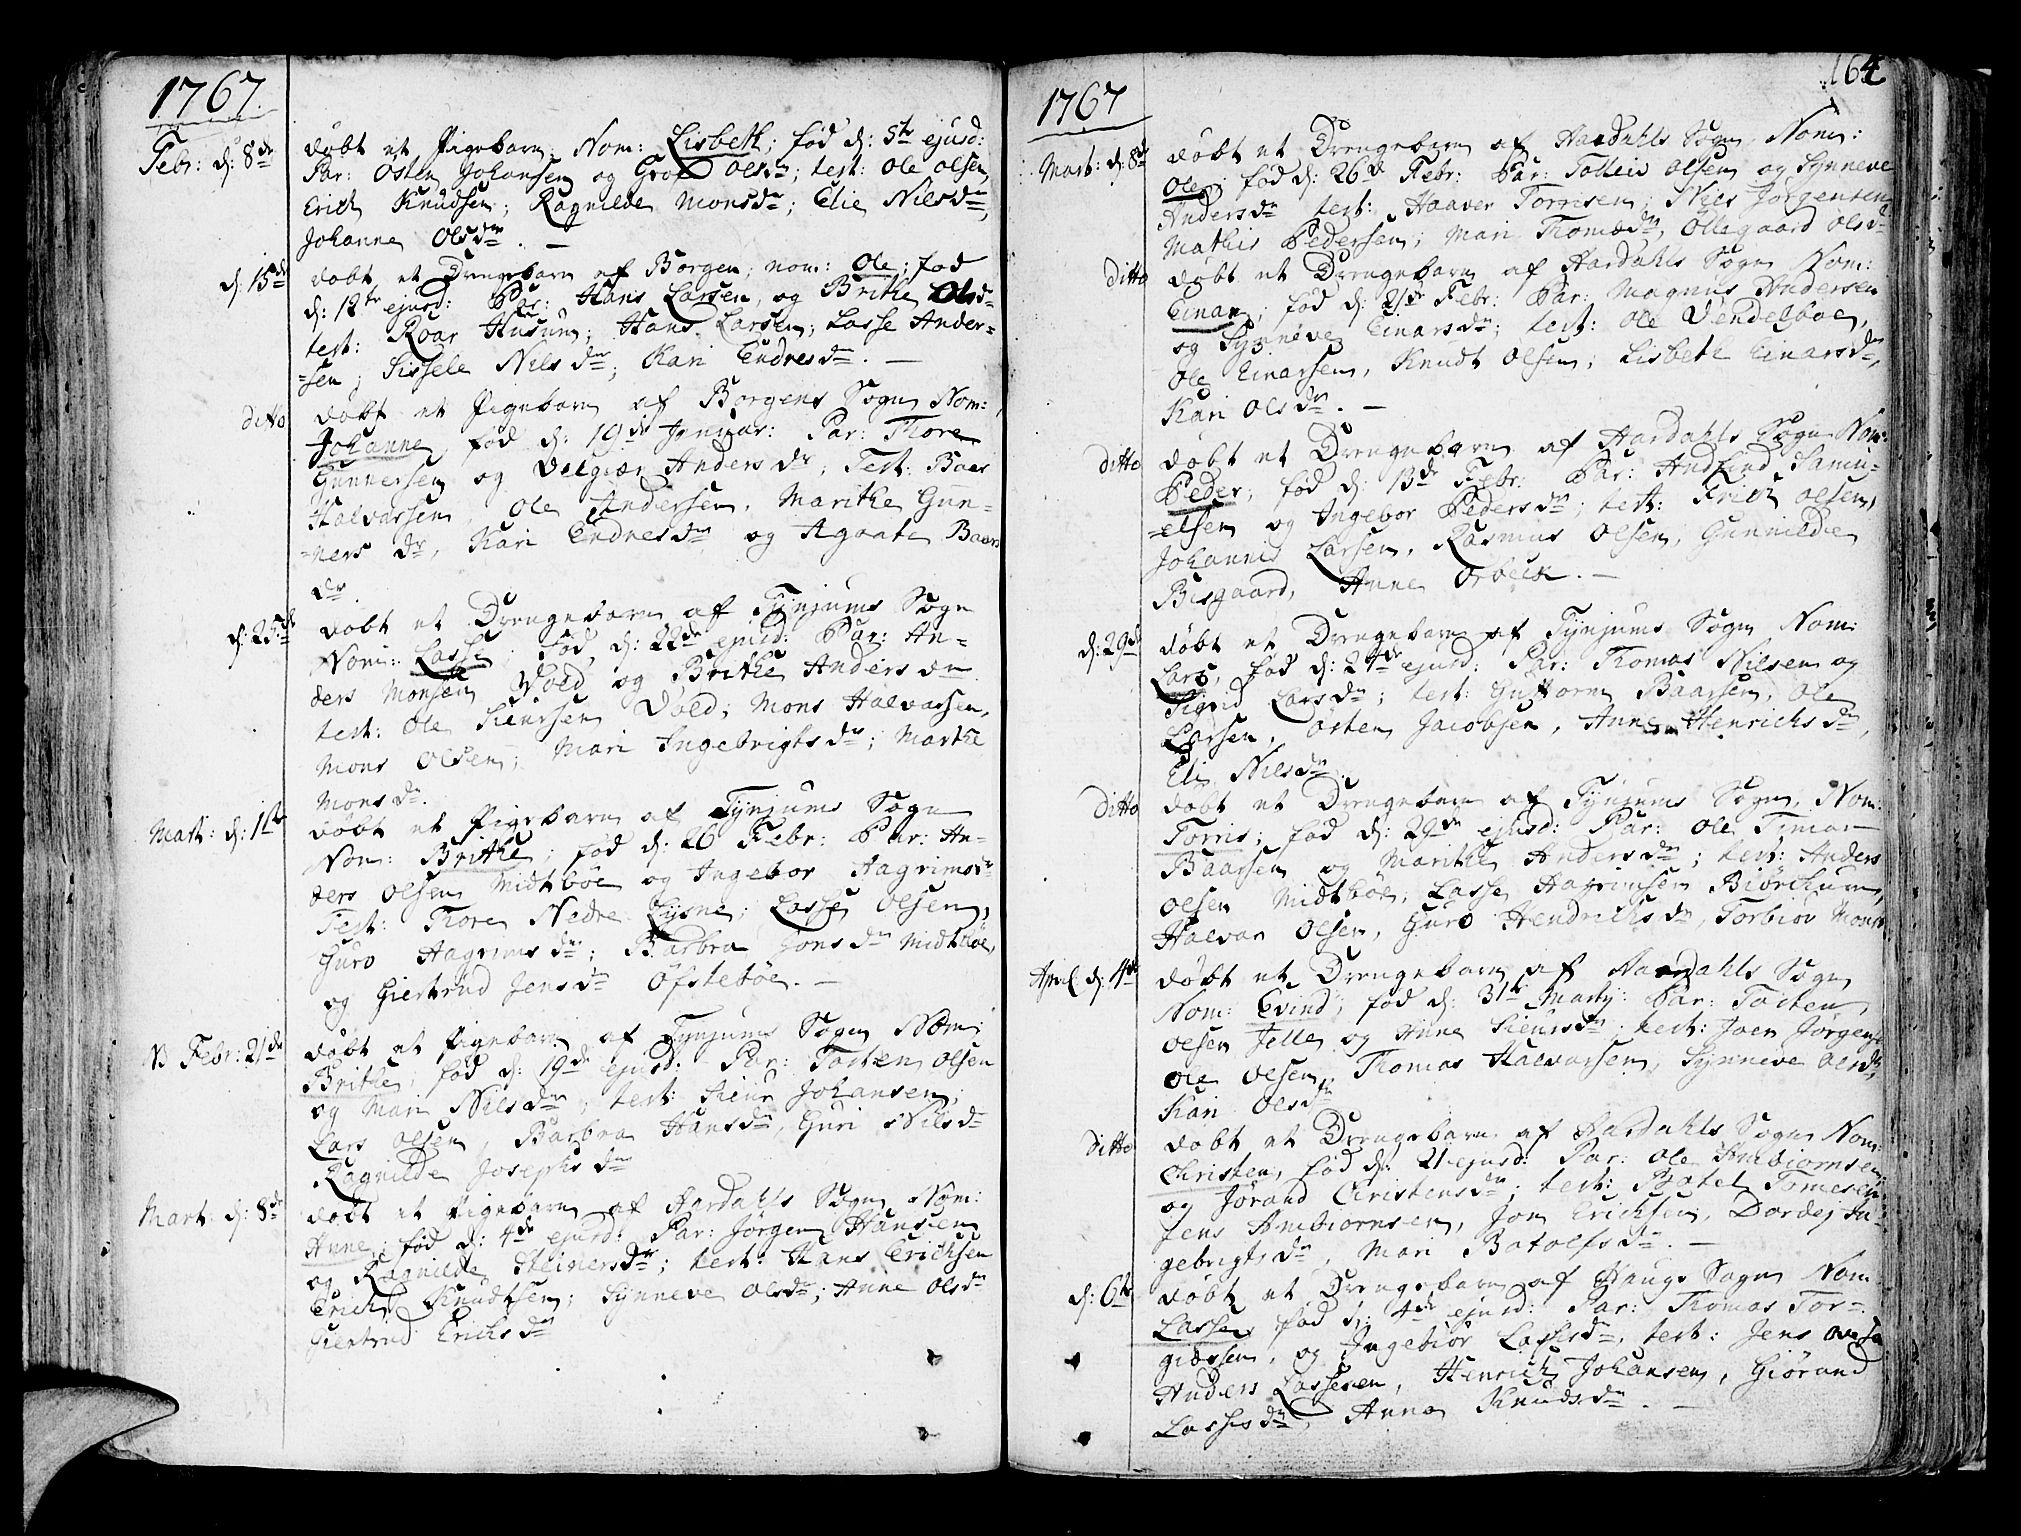 1767.
Febr: d: 8de døbt et Pigebarn Nom: Lisbeth; fød d: 5te ejusd:
Par: Østen Johansen og Groe Olsdr; test: Ole Olsen,
Erich Knudsen; Ragnilde Monsdr; Elie Nilsdr,
Johanne Olsdr. —
d: 15de døbt et Drengebarn af Borgen; nom: Ole; fød
d: 12te ejusd: Par: Hans Larsen, og Brithe Olsd
test: Roar Husum; Hans Larsen; Lasse Ander-
-sen; Sissele Nilsdr; Kari Endresdr. —
ditto døbt et Pigebarn af Borgens Sogn Nom:
Johanne, fød d: 19de Januar: Par: Thore
Gunnersen og Dorgiær Andersdr; Test: Baar
Halvarsen, Ole Andersen, Marithe Gun-
-ners dr, Kari Endresdr og Agaate Baars
dr.
d: 25de døbt et Drengebarn af Tynjums Sogn
Nom: Lasse. fød d: 22de ejusd: Par: An-
ders Monsen Vold og Brithe Andersdr
test: Ole Siursen Vold; Mons Halvarsen,
Mons Olsen; Mari Ingebrigtsdr; Marthe
Monsdr.
Mart: d: 1te døbt et Pigebarn af Tynjums Sogn
Nom: Brithe; fød d: 26 Febr: Par: An-
ders Olsen Midtbøe og Ingebor Hagrimsdr
Test: Thore Nedre Lysne; Lasse Olsen;
Guro Hagrimsdr; Barbra Jonsdr Midtbøe,
og Giertrud Jensdr Øfstebøe. —
NB Febr: 21de døbt et Pigebarn af Tynjums Sogn Nom:
Brithe; fød d: 19de ejusd: Par: Tosten Olsen
og Mari Nilsdr; test: Siur Johansen;
Lars Olsen, Barbra Hansdr, Guri Nilsdr
Ragnilde Josephsdr
Mart: d: 8de døbt et Pigebarn af Aardahls Sogn Nom:
Anne; fød d: 4de ejusd: Par: Jørgen Hansen
og Ragnilde Steinersdr; test: Hans Erichsen
Erich Knudtsen; Synneve Olsdr; Anne Olsdr
Giertrud Erichsdr
164
1767
Mart: d: 8de døbt et Drengebarn af Aardahls Sogn, Nom:
Ole; fød d: 26de Febr: Par: Tolleiv Olsen og Synneve
Andersdr test: Haaver Torrisen; Niels Jørgensen
Mathis Pedersen; Mari Thomædr, Ollegaard Olsdr
ditto døbt et Drengebarn af Aardahls Sogn Nom:
Einar; fød d: 21de Febr: Par: Magnus Andersen
og Synnève Einarsdr; test: Ole Vendelboe,
Ole Einarsen, Knudt Olsen; Lisbeth Einarsdr,
Kari Olsdr. —
ditto døbt et Drengebarn af Aardahls Sogn Nom:
Peder; fød d: 13de Febr: Par: Andfind Samu-
-elsen og Ingebor Pedersdr; test: Erich Olsen,
Johannes Larsen, Rasmus Olsen, Gunnilde
Bisgaard, Anne Orbeck. —
d: 29de døbt et Drengebarn af Tynjums Sogn Nom:
Lars, fød d: 27de ejusd: Par: Thomas Nilsen og
Sigrid Larsdr; test: Guttorm Baarsen, Ole
Larsen, Østen Jacobsen, Anne Henrichsdr,
Eli Nilsdr.
ditto døbt et Drengebarn af Tynjums Sogn, Nom:
Torris; fød d: 29de ejusd: Par: Ole Timar
Baarsen og Marithe Andersdr; test: Anders
Olsen Midtbøe; Lasse Hagrimsen Biørchum,
Halvar Olsen, Guro Hendrichsdr, Torbiov Monsdr
April d: 4de døbt et Drengebarn af Aardahls Sogn
Nom: Evind; fød d: 31te Martij: Par: Tosten
Olsen Jelle og Anne Siursdr; test: Joen Jørgens
Ole Olsen, Thomas Halvarsen, Synneve Olsdr,
Kari Olsdr
ditto døbt et Drengebarn af Aardahls Sogn Nom:
Christen, fød d: 21 ejusd: Par: Ole Ambiornsen,
og Jørand Christensdr; test: Botel Tomesen
Jens Ambiornsen, Jon Erichsen, Dordej In-
gebrigtsdr, Mari Botolfsdr. —
d: 6te døbt et Drengebarn af Hauge Sogn Nom
Lasse, fød d: 4de ejusd: Par: Thomas Tor-
giersen, og Ingebiør Lassesdr, test: Jens Ovese
Anders Lassesen, Henrich Johansen, Giørand
Lassesdr, Anna Knudsdr. —